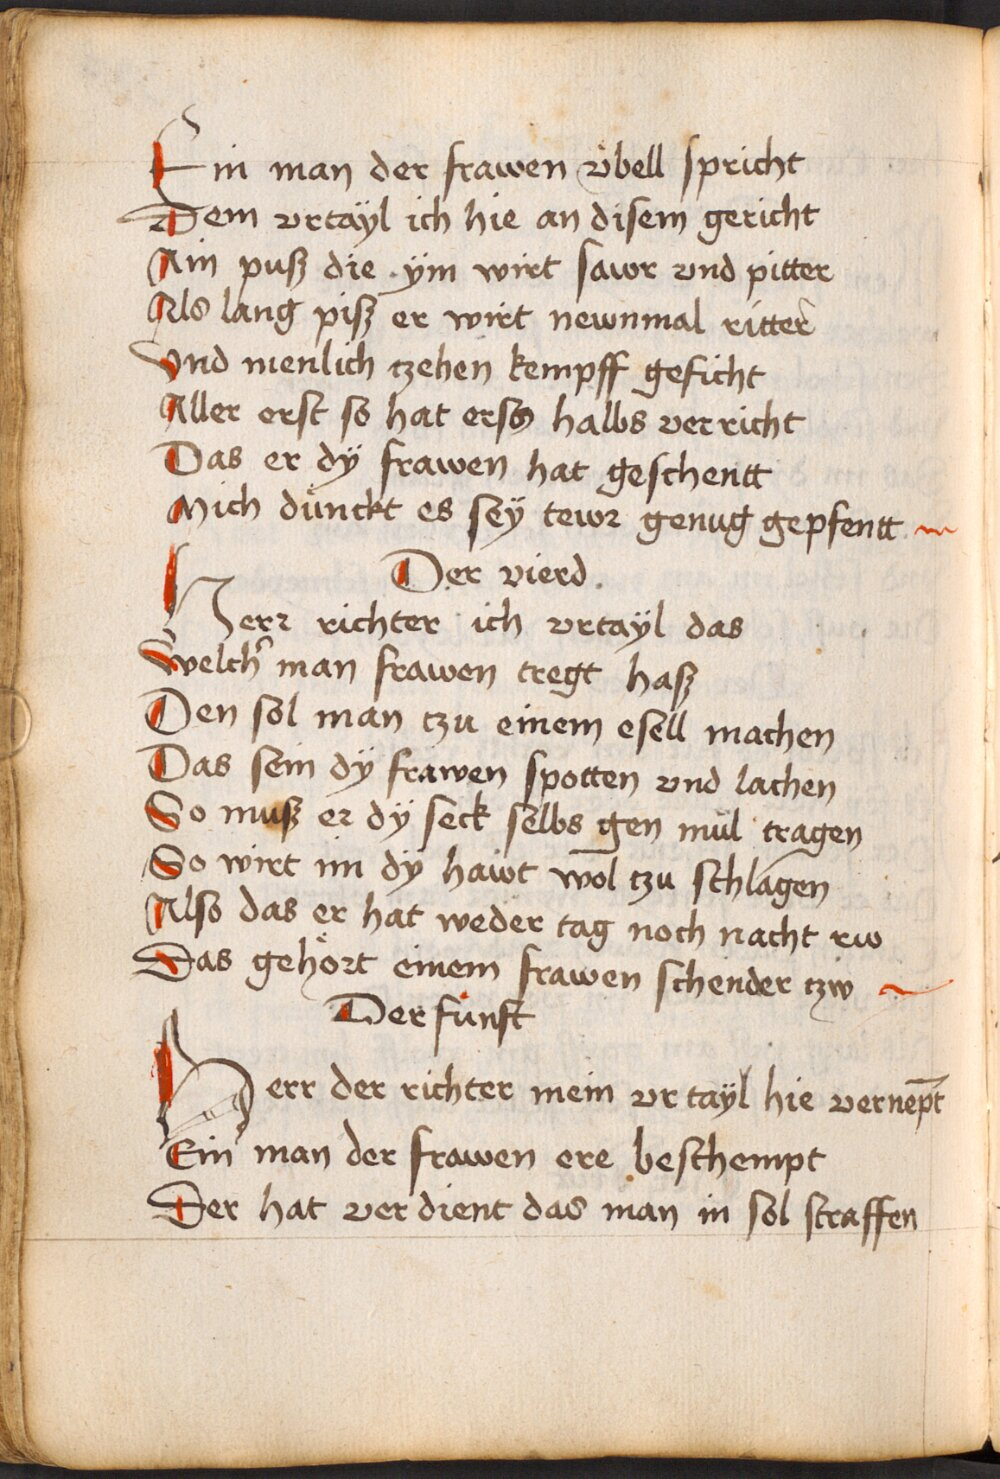 Ein man der frawen vͤbell spricht
Dem vrtayl ich hie an disem gericht
Ain puß die ym wirt sawr vnd pitter
Als lang piß er wirt newnmal ritter
Vnd menlich tzehen kempff geficht
Aller erst so hat ers halbs verricht
Das er dÿ frawen hat geschentt
Mich dünckt es seÿ tewr genug gepfentt
Der vierd
Herr richter ich vrtaÿl das
Welch̉ man frawen tregt haß
Den sol man tzu einem esell machen
Das sein dÿ frawen spotten vnd lachen
So muß er dÿ seck selbs gen mül tragen
So wirt im dÿ hawt wol tzu schlagen
Also das er hat weder tag noch nacht rw
Das gehört einem frawen schender tzw
Der fünft
Herr der richter mein vrtaÿl hie vernēpt
Ein man der frawen ere beschempt
Der hat verdient das man in sol straffen